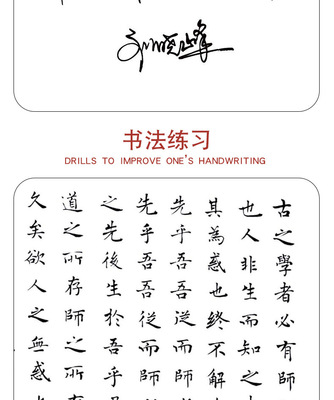 刘晓峰
书法练习
DRILLS TO IMPROVE ONE'S HANDWRITING
古之學者必有師
也人非生而知之
其為惑也終不解
先乎吾吾從而師
先乎吾吾從而師
之先後生於吾乎
道之所存師之所
久矣欲人之無惑